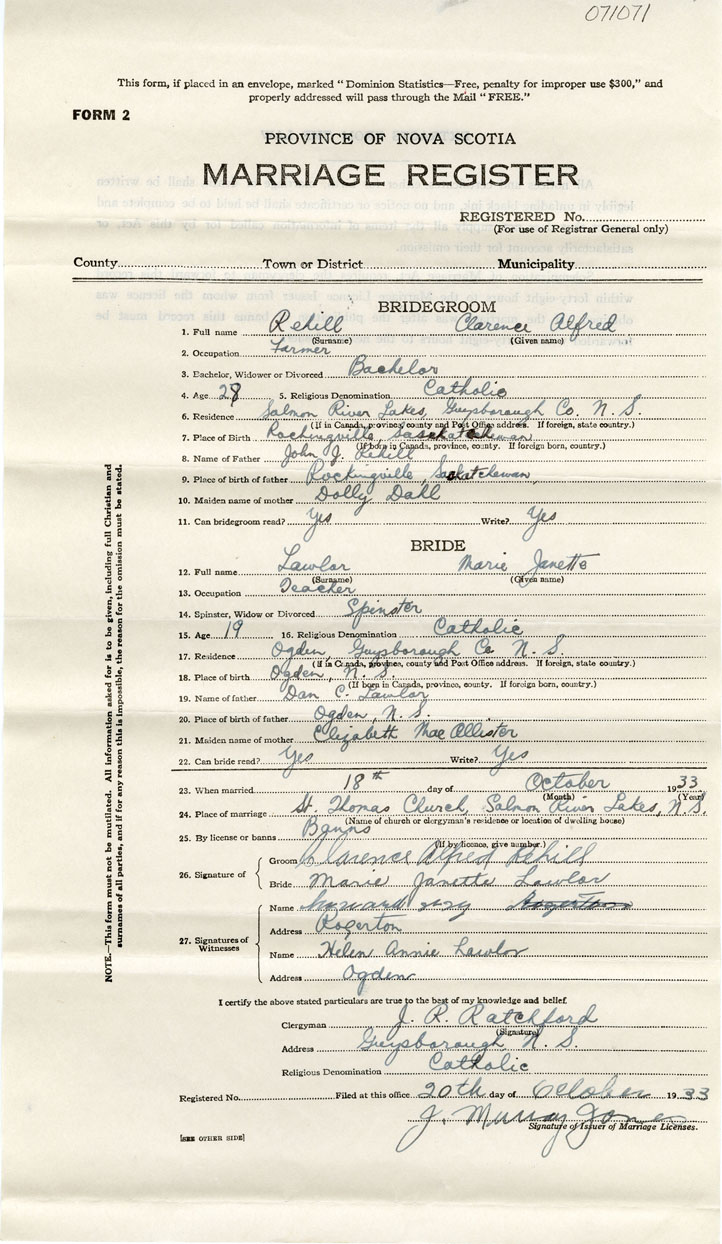 071071
This form, if placed in an envelope, marked "Dominion Statistics—Free, penalty for improper use $300," and
properly addressed will pass through the Mail "FREE."
FORM 2
PROVINCE OF NOVA SCOTIA
MARRIAGE REGISTER
REGISTERED No.
(For use of Registrar General only)
County Town or District Municipality
BRIDEGROOM
1. Full name Rehill Clarence Alfred
(Surname) (Given name)
2. Occupation Farmer
3. Bachelor, Widower or Divorced Bachelor
4. Age 28 5. Religious Denomination Catholic
6. Residence Salmon River Lakes, Guysborough Co. N. S.
(If in Canada, province, county and Post Office address. If foreign, state country.)
7. Place of Birth Rockingville, Saskatchewan
(If born in Canada, province, county. If foreign born, country.)
8. Name of Father John J. Rehill
9. Place of birth of father Rockingville, Saskatchewan
10. Maiden name of mother Dolly Dahl
11. Can bridegroom read? Yes Write? Yes
BRIDE
12. Full name Lawlor Marie Janette
(Surname) (Given name)
13. Occupation Teacher
14. Spinster, Widow or Divorced Spinster
15. Age 19 16. Religious Denomination Catholic
17. Residence Ogden, Guysborough Co N. S.
(If in Canada, province, county and Post Office address. If foreign, state country.)
18. Place of birth Ogden, N. S.
(If born in Canada, province, county. If foreign born, country.)
19. Name of father Dan C. Lawlor
20. Place of birth of father Ogden, N. S
21. Maiden name of mother Elizabeth Mac Allister
22. Can bride read? Yes Write? Yes
23. When married 18th day of October 1933
(Month) (Year)
24. Place of marriage St. Thomas Church, Salmon River Lakes, N.S.
(Name of church or clergyman's residence or location of dwelling house)
25. By license or banns Banns
(If by licence, give number.)
26. Signature of
Groom Clarence Alfred Rehill
Bride Marie Janette Lawlor
27. Signatures of Witnesses
Name
Address Rogerton
Name Helen Annie Lawlor
Address Ogden
I certify the above stated particulars are true to the best of my knowledge and belief.
Clergyman J. R. Ratchford
(Signature)
Address Guysborough N. S.
Religious Denomination Catholic
Registered No. Filed at this office 20th day of October 1933
J. Murray Jones
Signature of Issuer of Marriage Licenses.
[SEE OTHER SIDE]
NOTE.—This form must not be mutilated. All information asked for is to be given, including full Christian and
surnames of all parties, and if for any reason this is impossible, the reason for the omission must be stated.